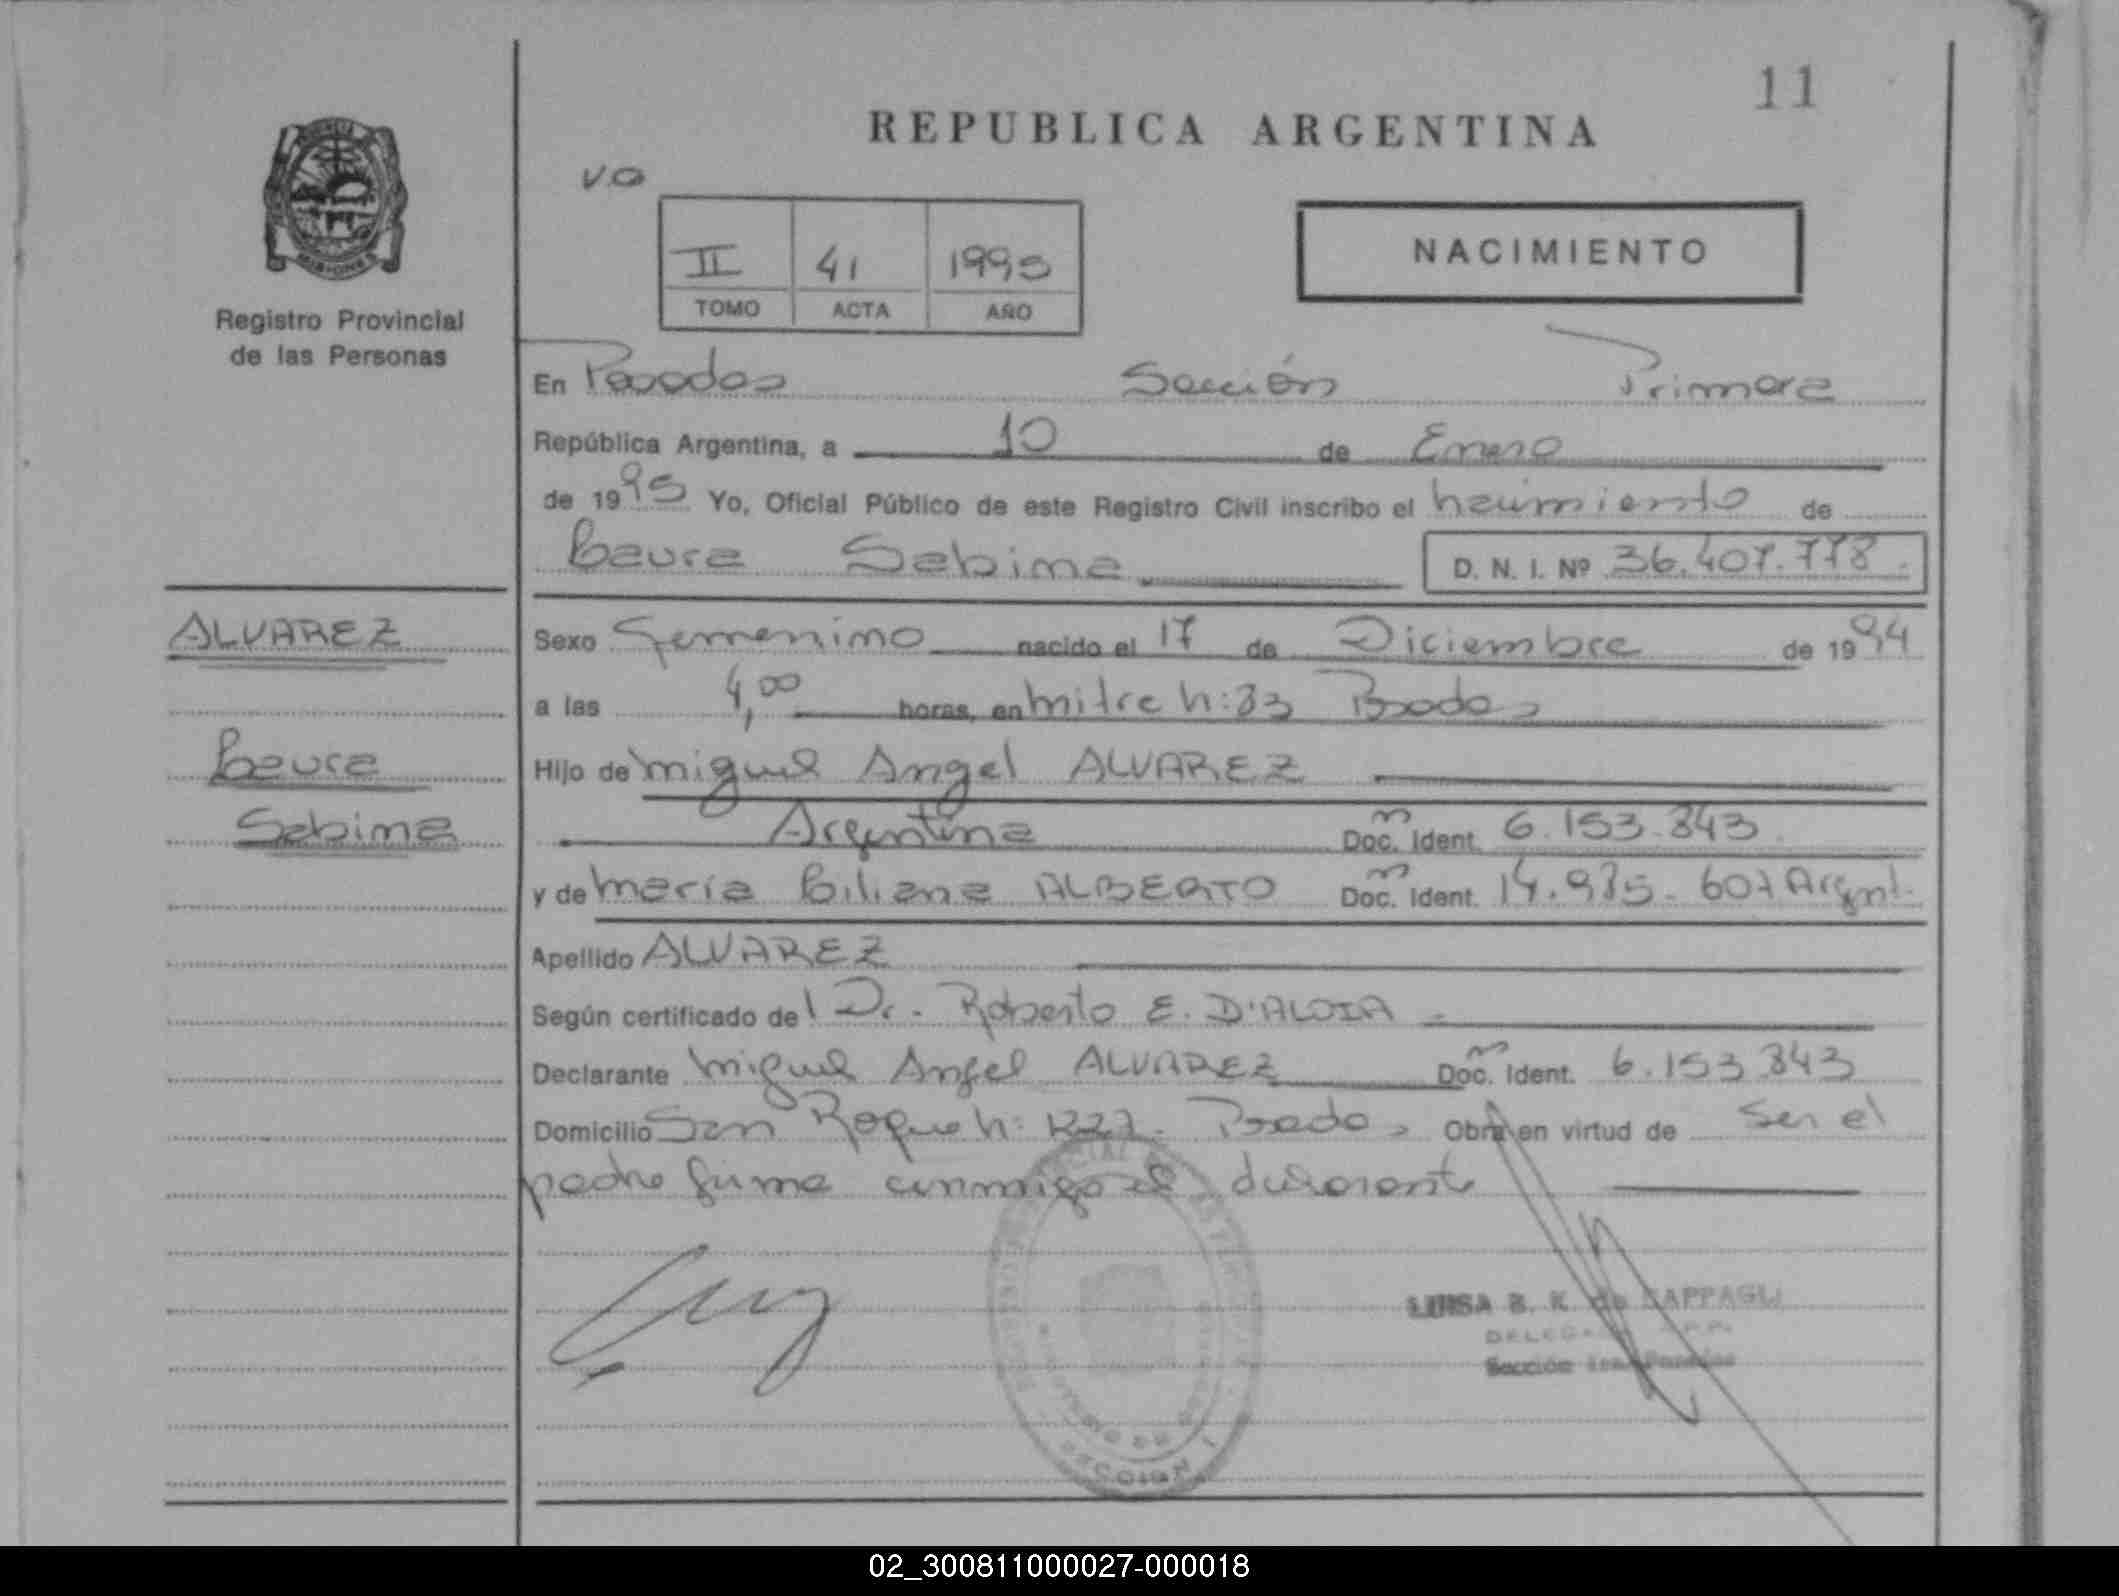 11
REPUBLICA ARGENTINA
VO
II 41 1995
TOMO ACTA AÑO
NACIMIENTO
MISIONES
Registro Provincial
de las Personas
En Posadas Sección Primera
República Argentina, a 10 de Enero
de 1995 Yo, Oficial Público de este Registro Civil inscribo el nacimiento de
Laura Sabina D. N. I. Nº 36.407.778.
ALVAREZ
Laura
Sabina
Sexo Femenino nacido el 17 de Diciembre de 1994
a las 4,00 horas, en Mitre N: 33 Posadas
Hijo de Miguel Angel ALVAREZ
Argentina Doc. Ident. 6.153.843
y de María Liliana ALBERTO Doc. Ident. 14.985.607 Argnt.
Apellido ALVAREZ
Según certificado del Dr. Roberto E. D'ALOIA
Declarante Miguel Angel ALVAREZ Doc. Ident. 6.153.843
Domicilio San Roque N: 1227. Posadas Obra en virtud de ser el
padre firma conmigo el declarante
LUISA B. K. de ZAPPAGLI
Sección
SECCION 1
02_300811000027-000018